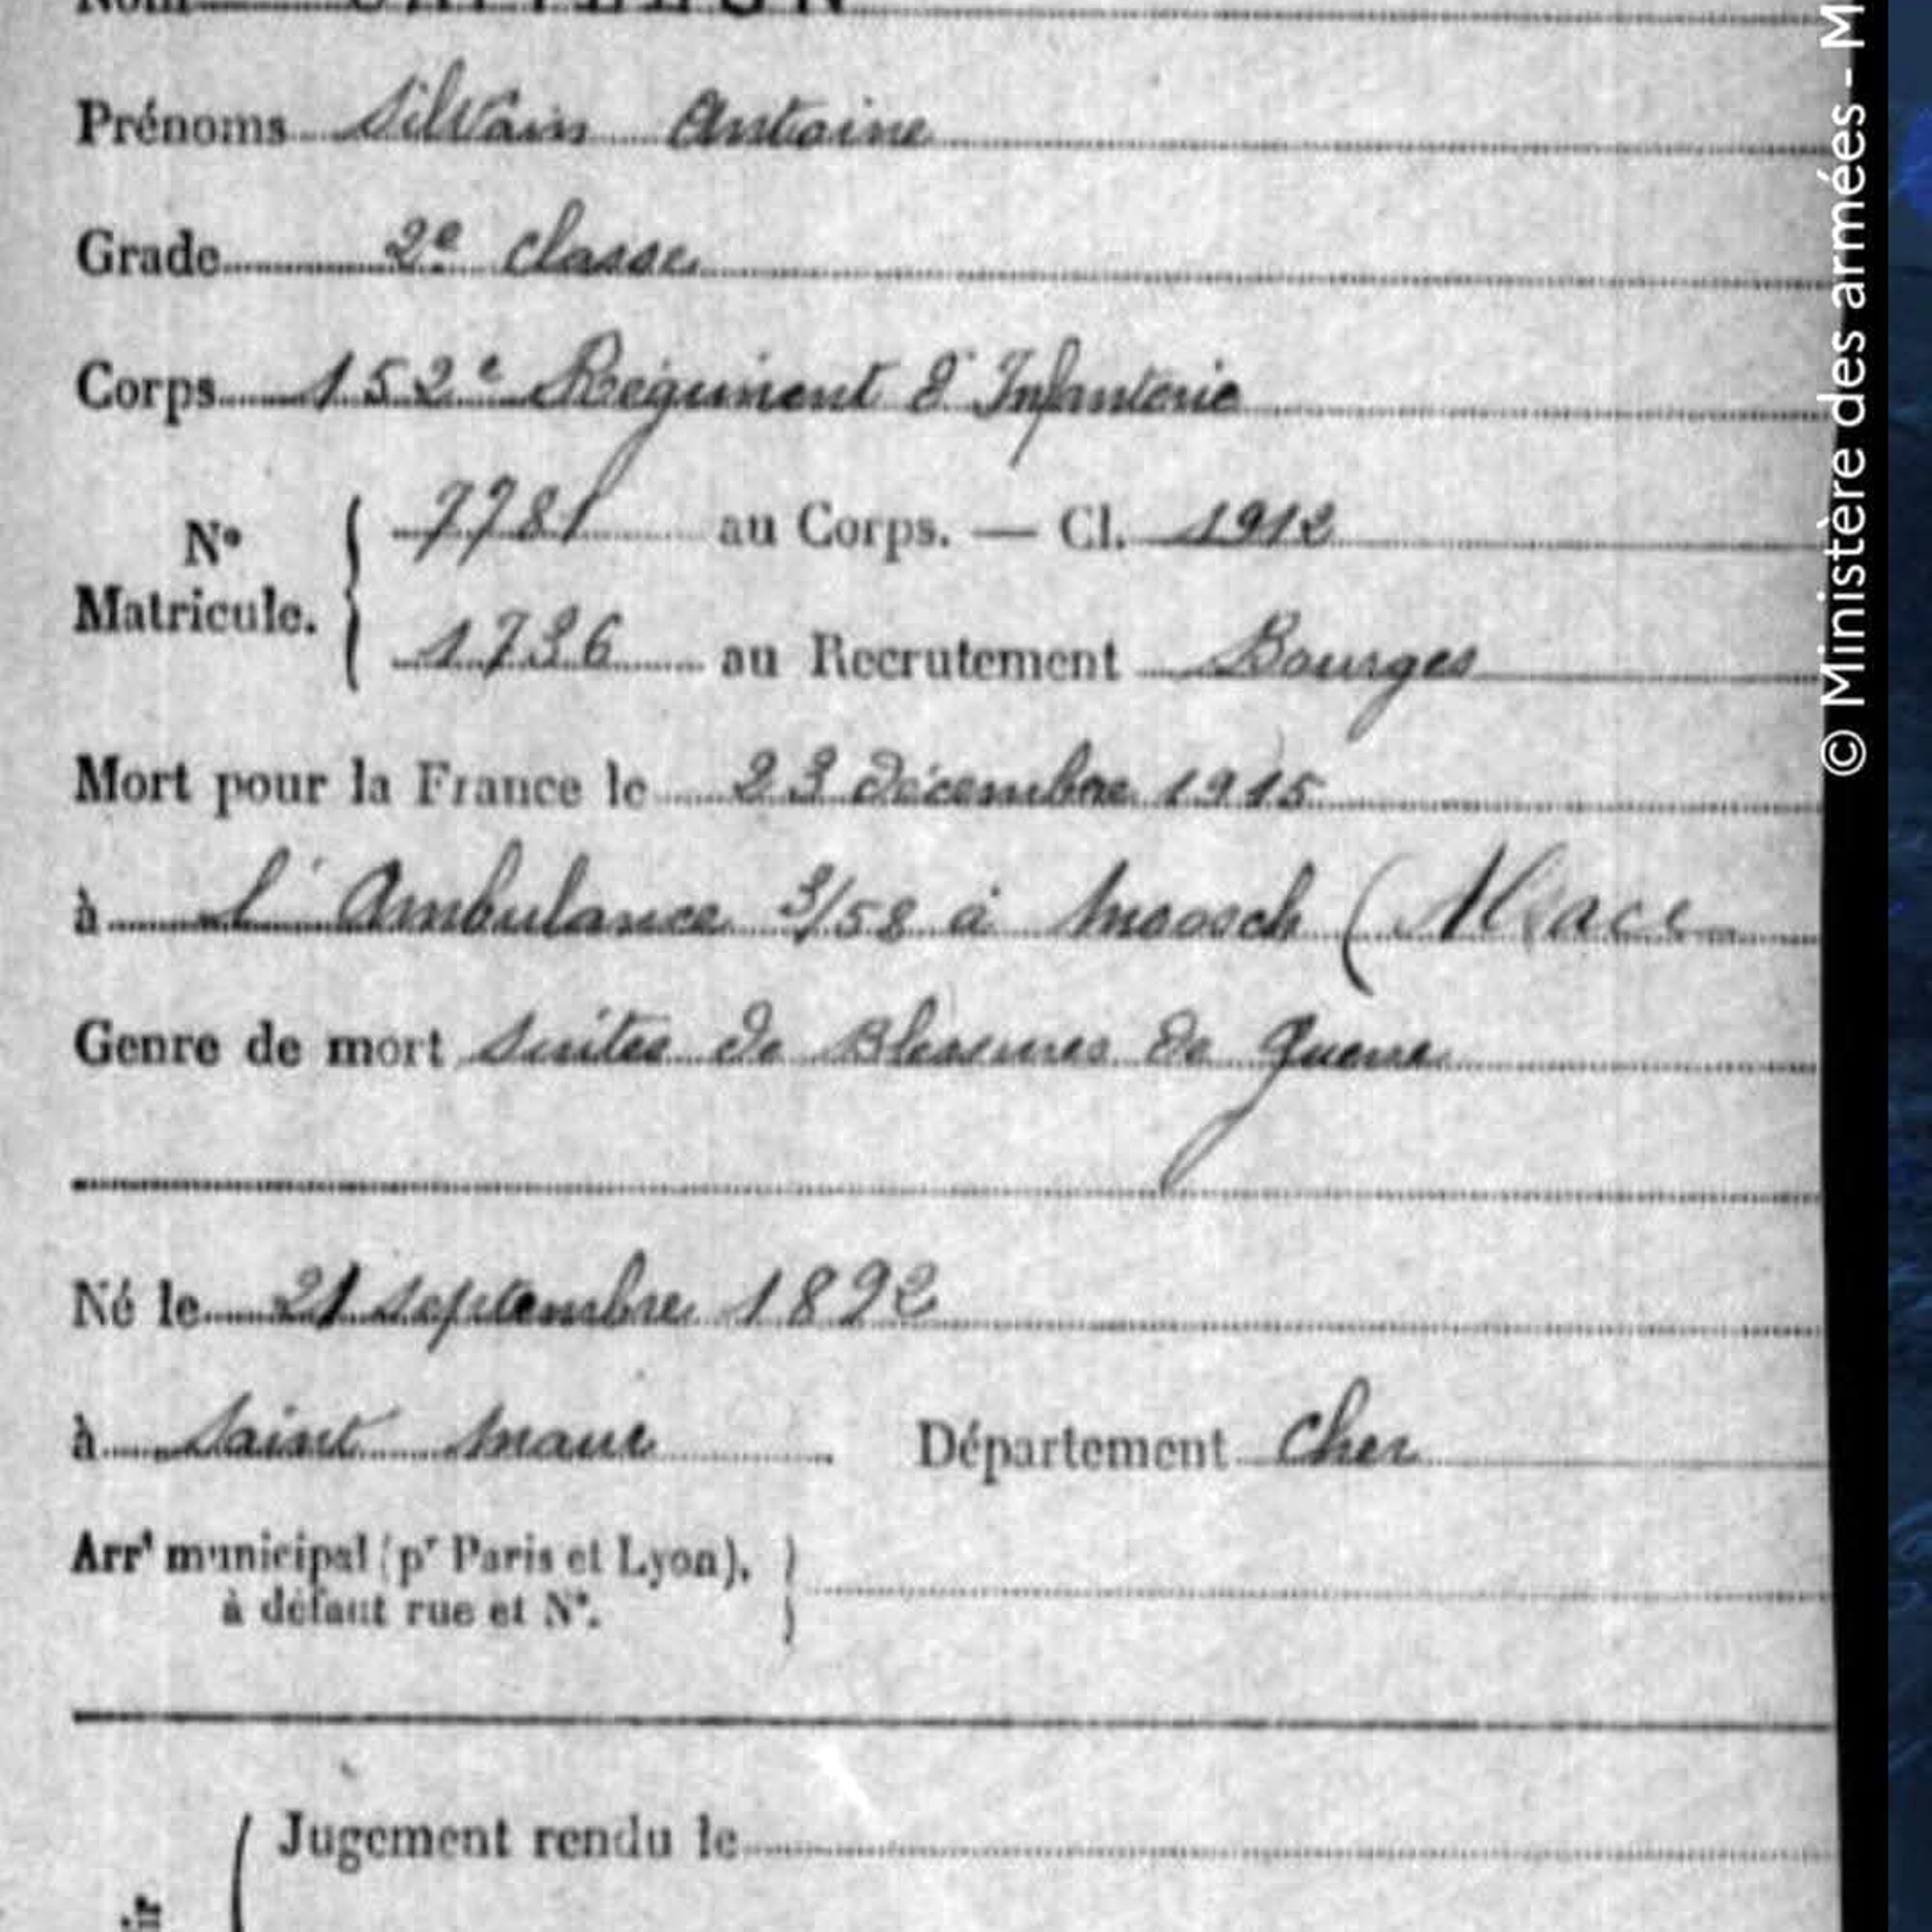 Nom
Prénoms Silvain Antoine
Grade 2e classe
Corps 152e Régiment d'Infanterie
No Matricule. { 7781 au Corps. — Cl. 1912
1736 au Recrutement Bourges
Mort pour la France le 23 décembre 1915
à l'Ambulance 3/58 à Moosch (Alsace
Genre de mort suites de Blessures de guerre
Né le 21 septembre 1892
à Saint Maur Département Cher
Arrt municipal (pr Paris et Lyon),
à défaut rue et No. }
Jugement rendu le
© Ministère des armées - M